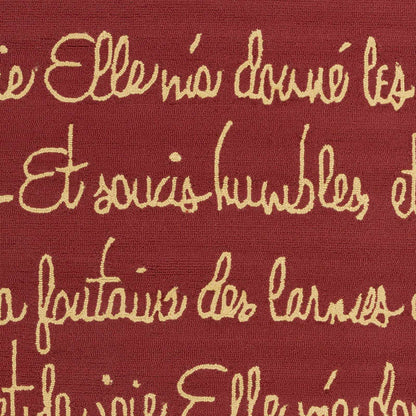 ie Elle m'a donné les
- Et soucis humbles, et
a fontaine des larmes
et de joie Elle m'a do